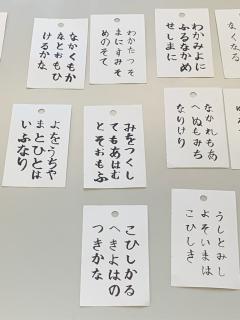 なかくもか
なとおもひ
けるかな
わかたつそ
まにすみそ
めのそて
わかみよに
ふるなかめ
せしまに
よをうちや
まとひとは
いふなり
みをつくし
てもあはむ
とそおもふ
なかれもあ
へぬもみち
なりけり
こひしかる
へきよはの
つきかな
うしとみし
よそいまは
こひしき